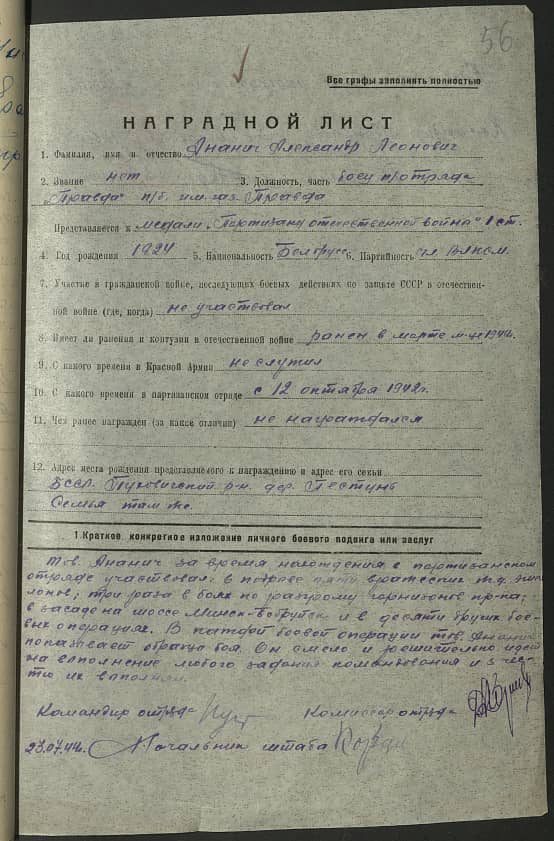 56
Все графы заполнять полностью
НАГРАДНОЙ ЛИСТ
1. Фамилия, имя и отчество Ананич Александр Леонович
2. Звание нет 3. Должность, часть боец п/отряда
"Правда" п/б. им. газ. Правда
Представляется к медали "Партизану отечественной война" I ст.
4. Год рождения 1924 5. Национальность Белорусс 6. Партийность чл. ВЛКСМ.
7. Участие в гражданской войне, последующих боевых действиях по защите СССР в отечествен-
ной войне (где, когда) не участвовал
8. Имеет ли ранения и контузии в отечественной войне ранен в марте м-це 1944г.
9. С какого времени в Красной Армии не служил
10. С какого времени в партизанском отряде с 12 октября 1942г.
11. Чем ранее награжден (за какие отличия) не награждался
12. Адрес места рождения представляемого к награждению и адрес его семьи
БССР. Пуховичский р-н. дер. Пестунь
Семья там же.
1. Краткое, конкретное изложение личного боевого подвига или заслуг
Тов. Ананич за время нахождения в партизанском
отряде участвовал в подрыве пяти вражеских ж.д. эше-
лонов; три раза в боях по разгрому гарнизонов пр-ка;
в засаде на шоссе Минск-Бобруйск и в десяти других бое-
вых операциях. В каждой боевой операции тов. Ананич
показывает образцы боя. Он смело и решительно идет
на выполнение любого задания командования и с чес-
тью их выполнял.
Командир отряда Комиссар отряда
23.07.44г. Начальник штаба